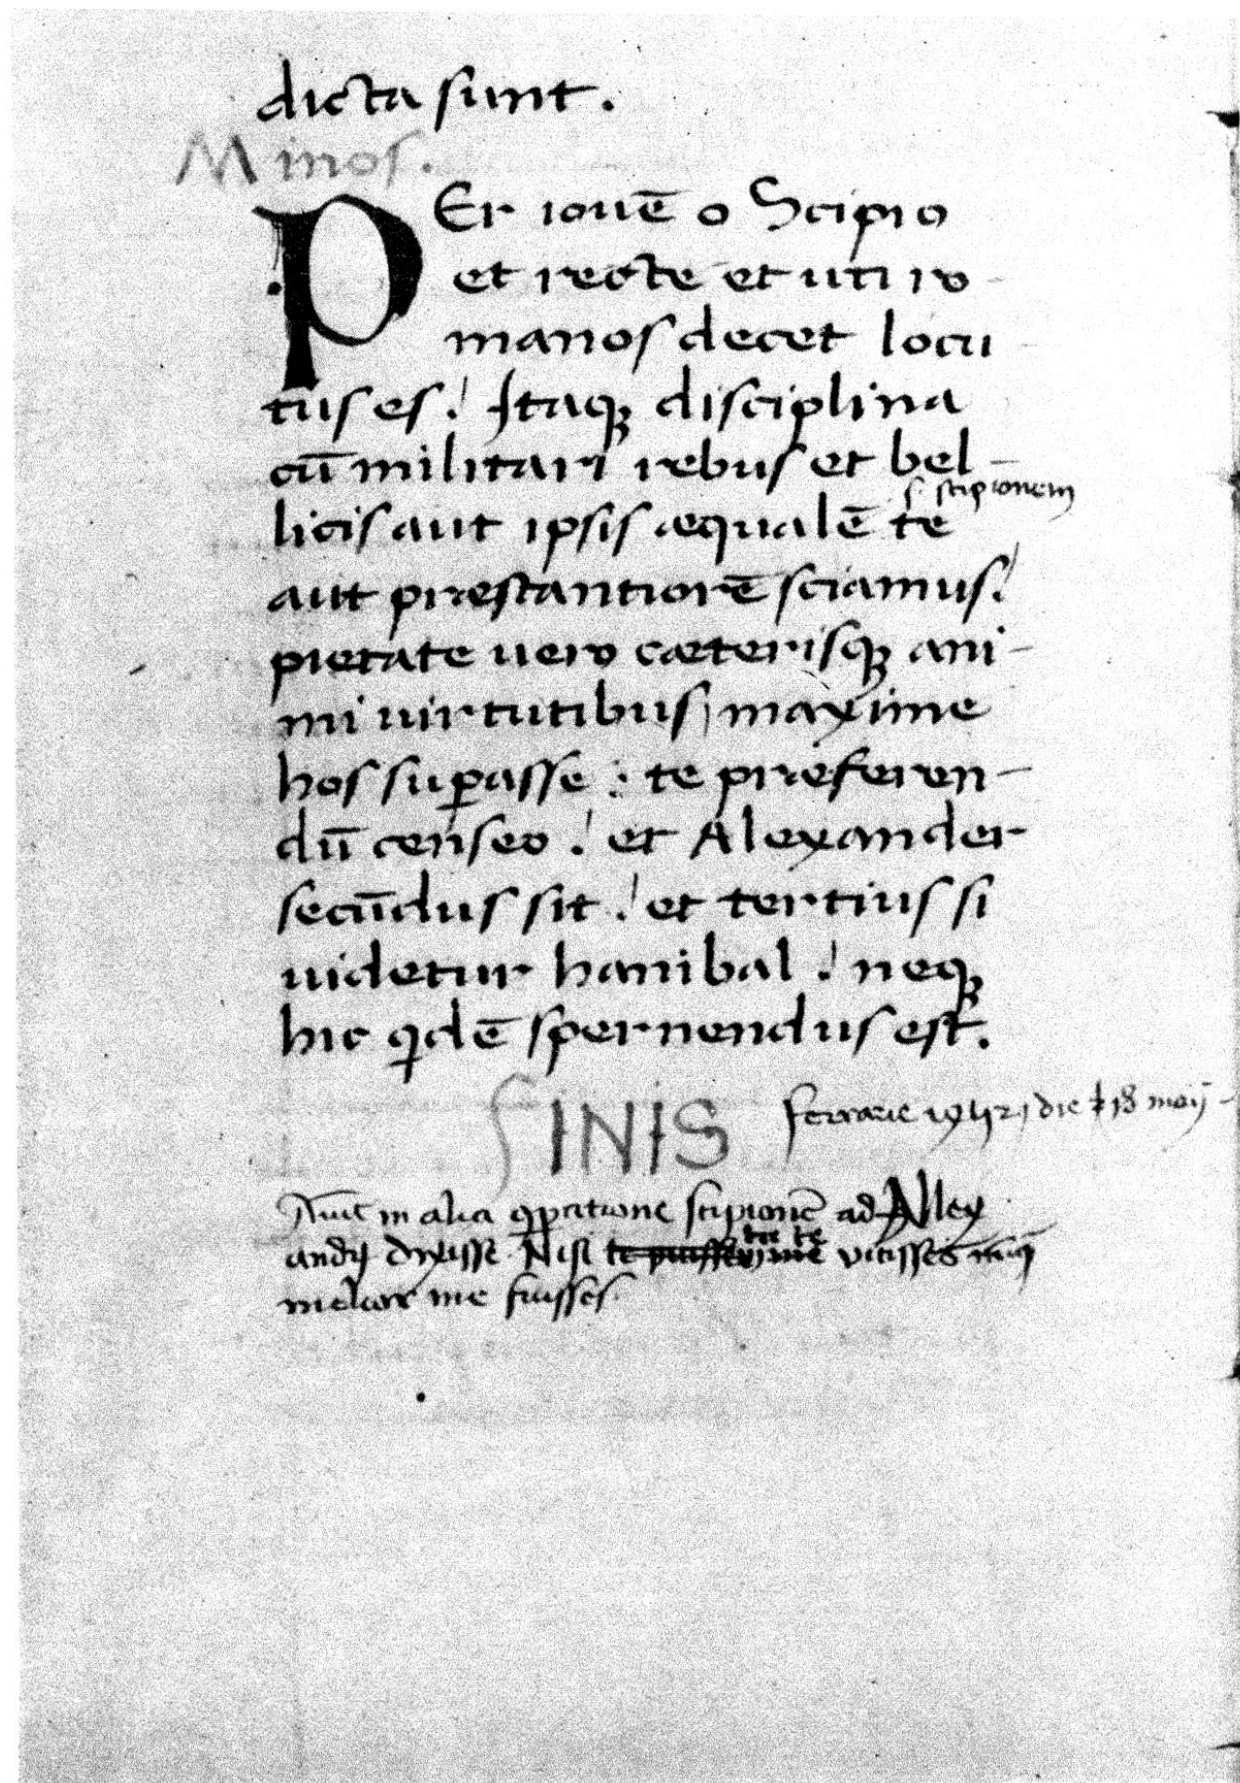 dicta sunt.
Minos.
PEr iouē o Scipio
et recte et uti ro-
manos decet locu-
tus es. Itaqꝫ disciplina
cū militari rebus et bel-
s. scipionem
licis aut ipsis æqualē te
aut præstantiorē sciamus.
pietate uero cæterisqꝫ ani-
mi uirtutibus, maxime
hos suꝑasse : te præferen-
dū censeo. et Alexander
secūdus sit. et tertius si
uidetur hanibal. neqꝫ
hic qdē spernendus est.
FINIS
ferrarie die 18 maij
in alia scipionē ad Alex
dixisse Nisi
tu te
me uicisses
me fuisses.